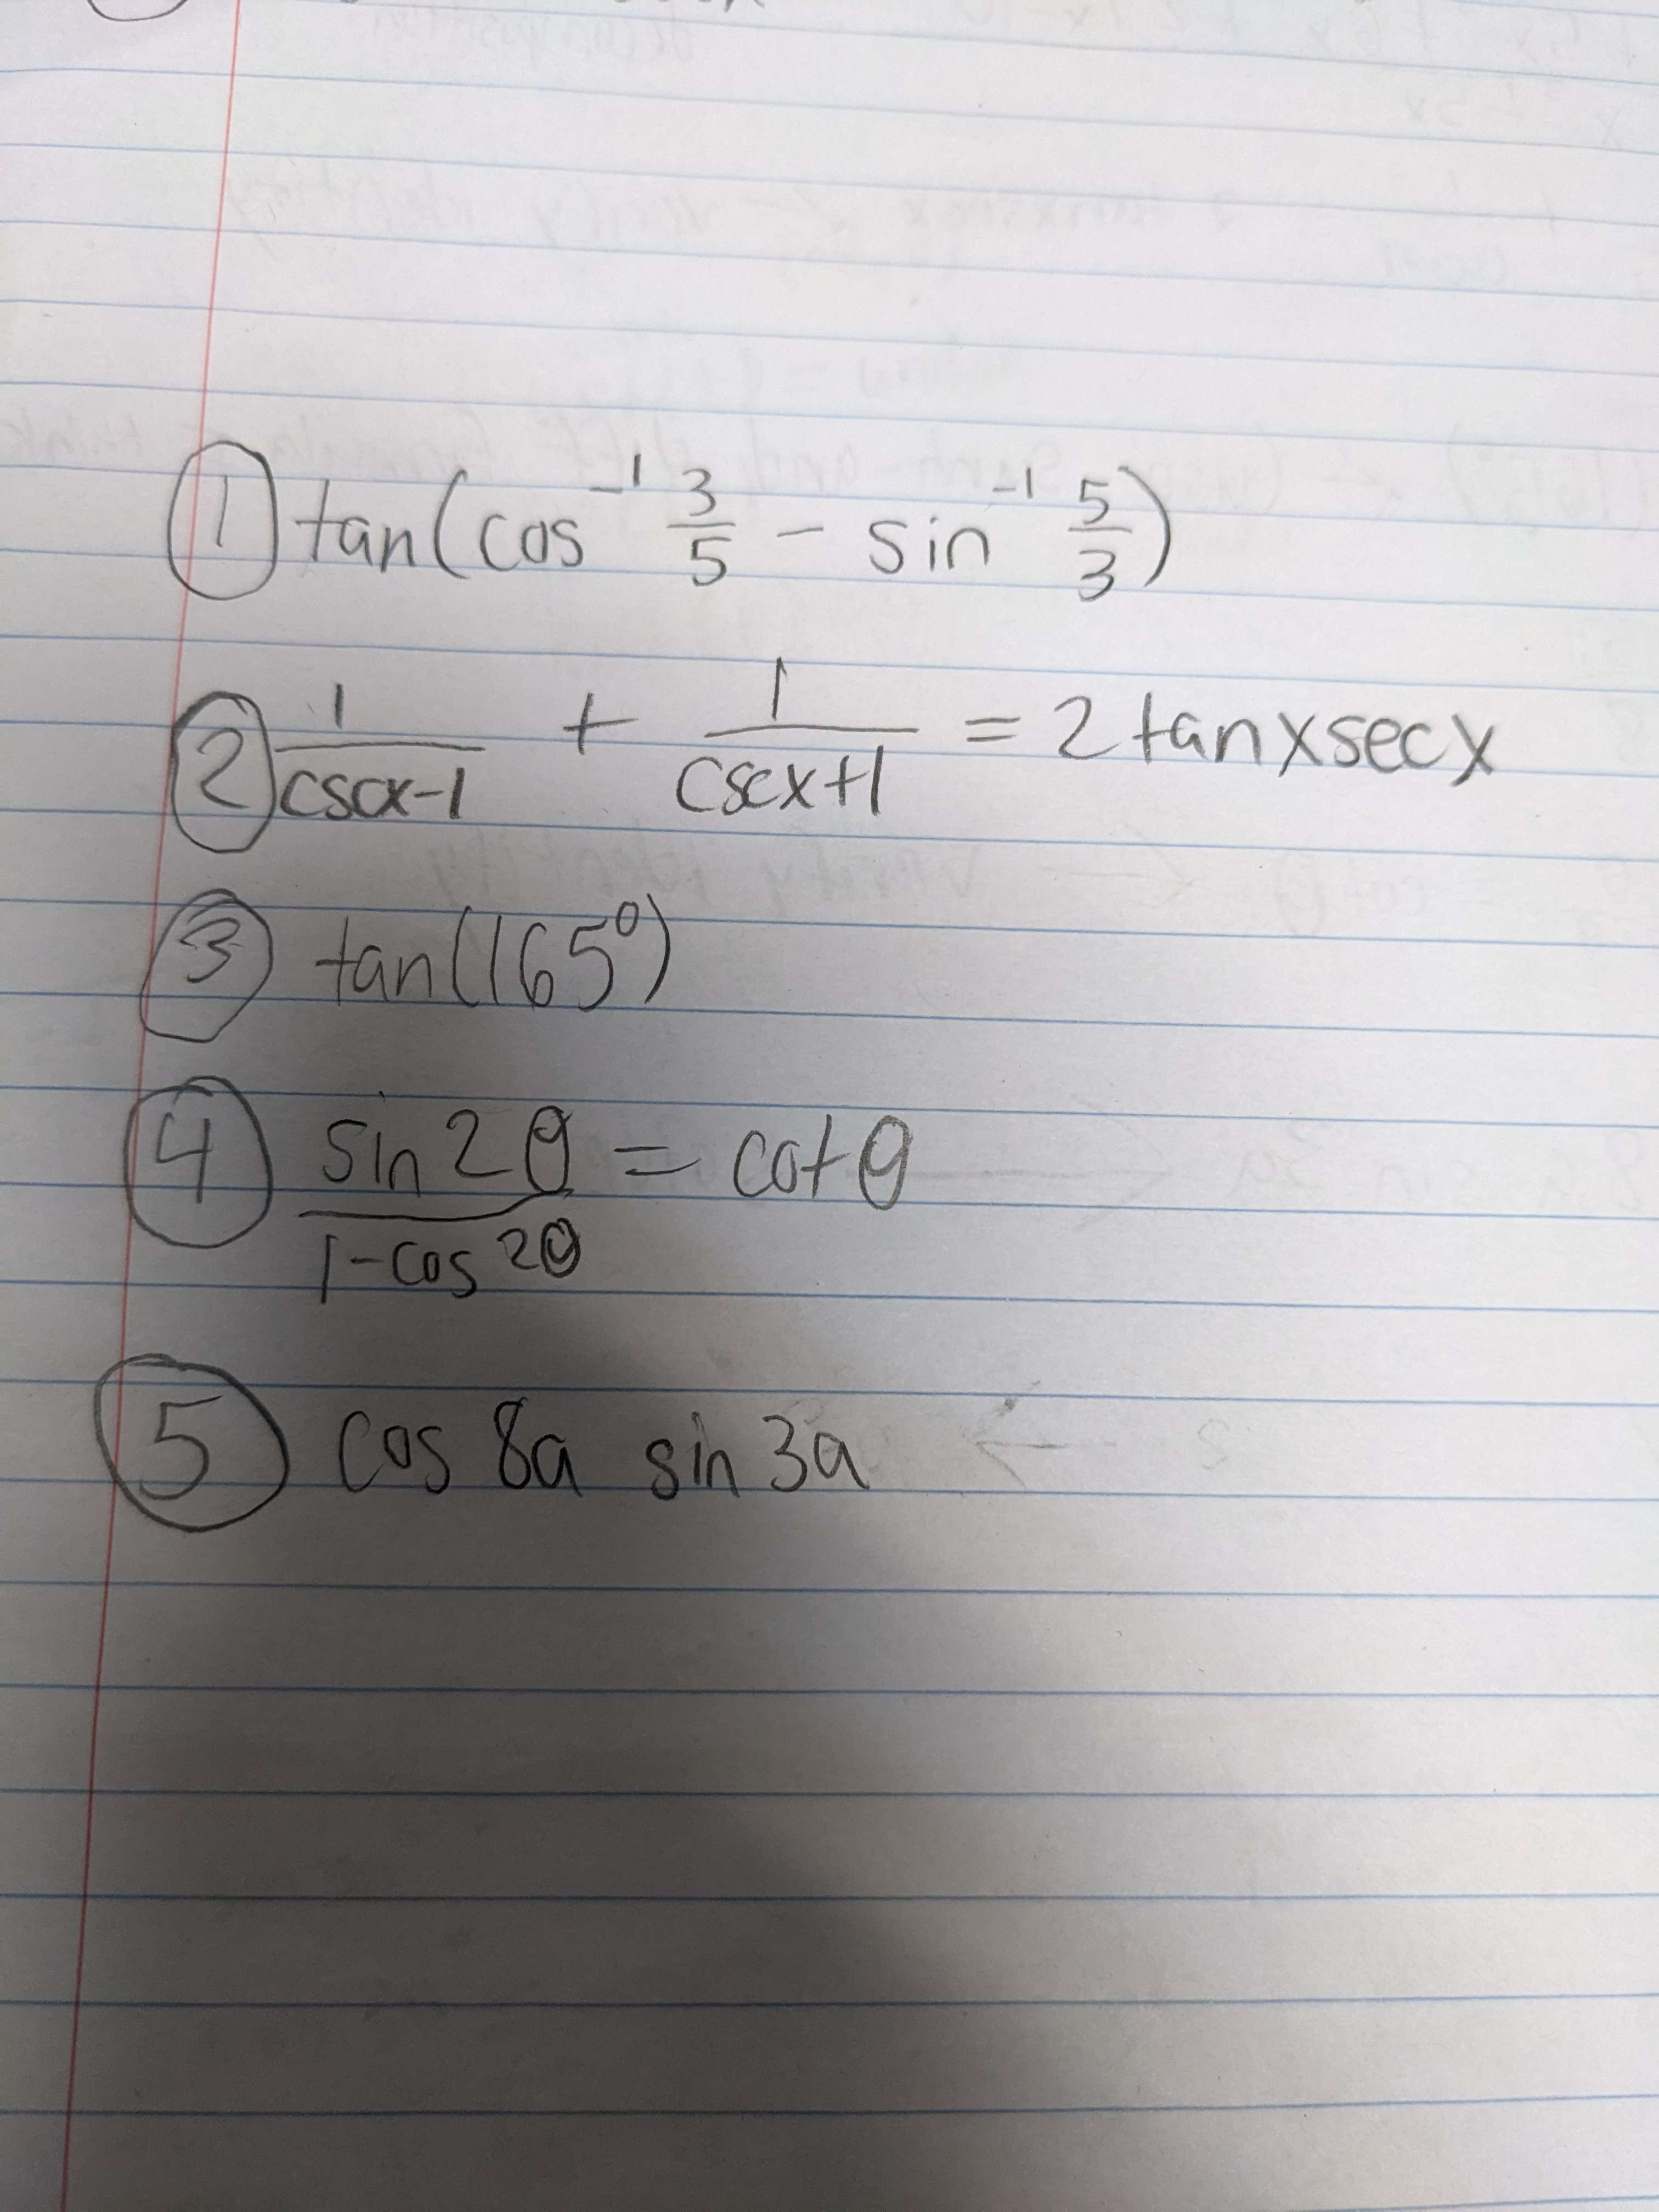 ① tan(cos⁻¹ 3/5 - sin⁻¹ 5/3)
② 1/(cscx-1) + 1/(cscx+1) = 2tanxsecx
③ tan(165°)
④ sin2θ/(1-cos2θ) = cotθ
⑤ cos 8a sin 3a